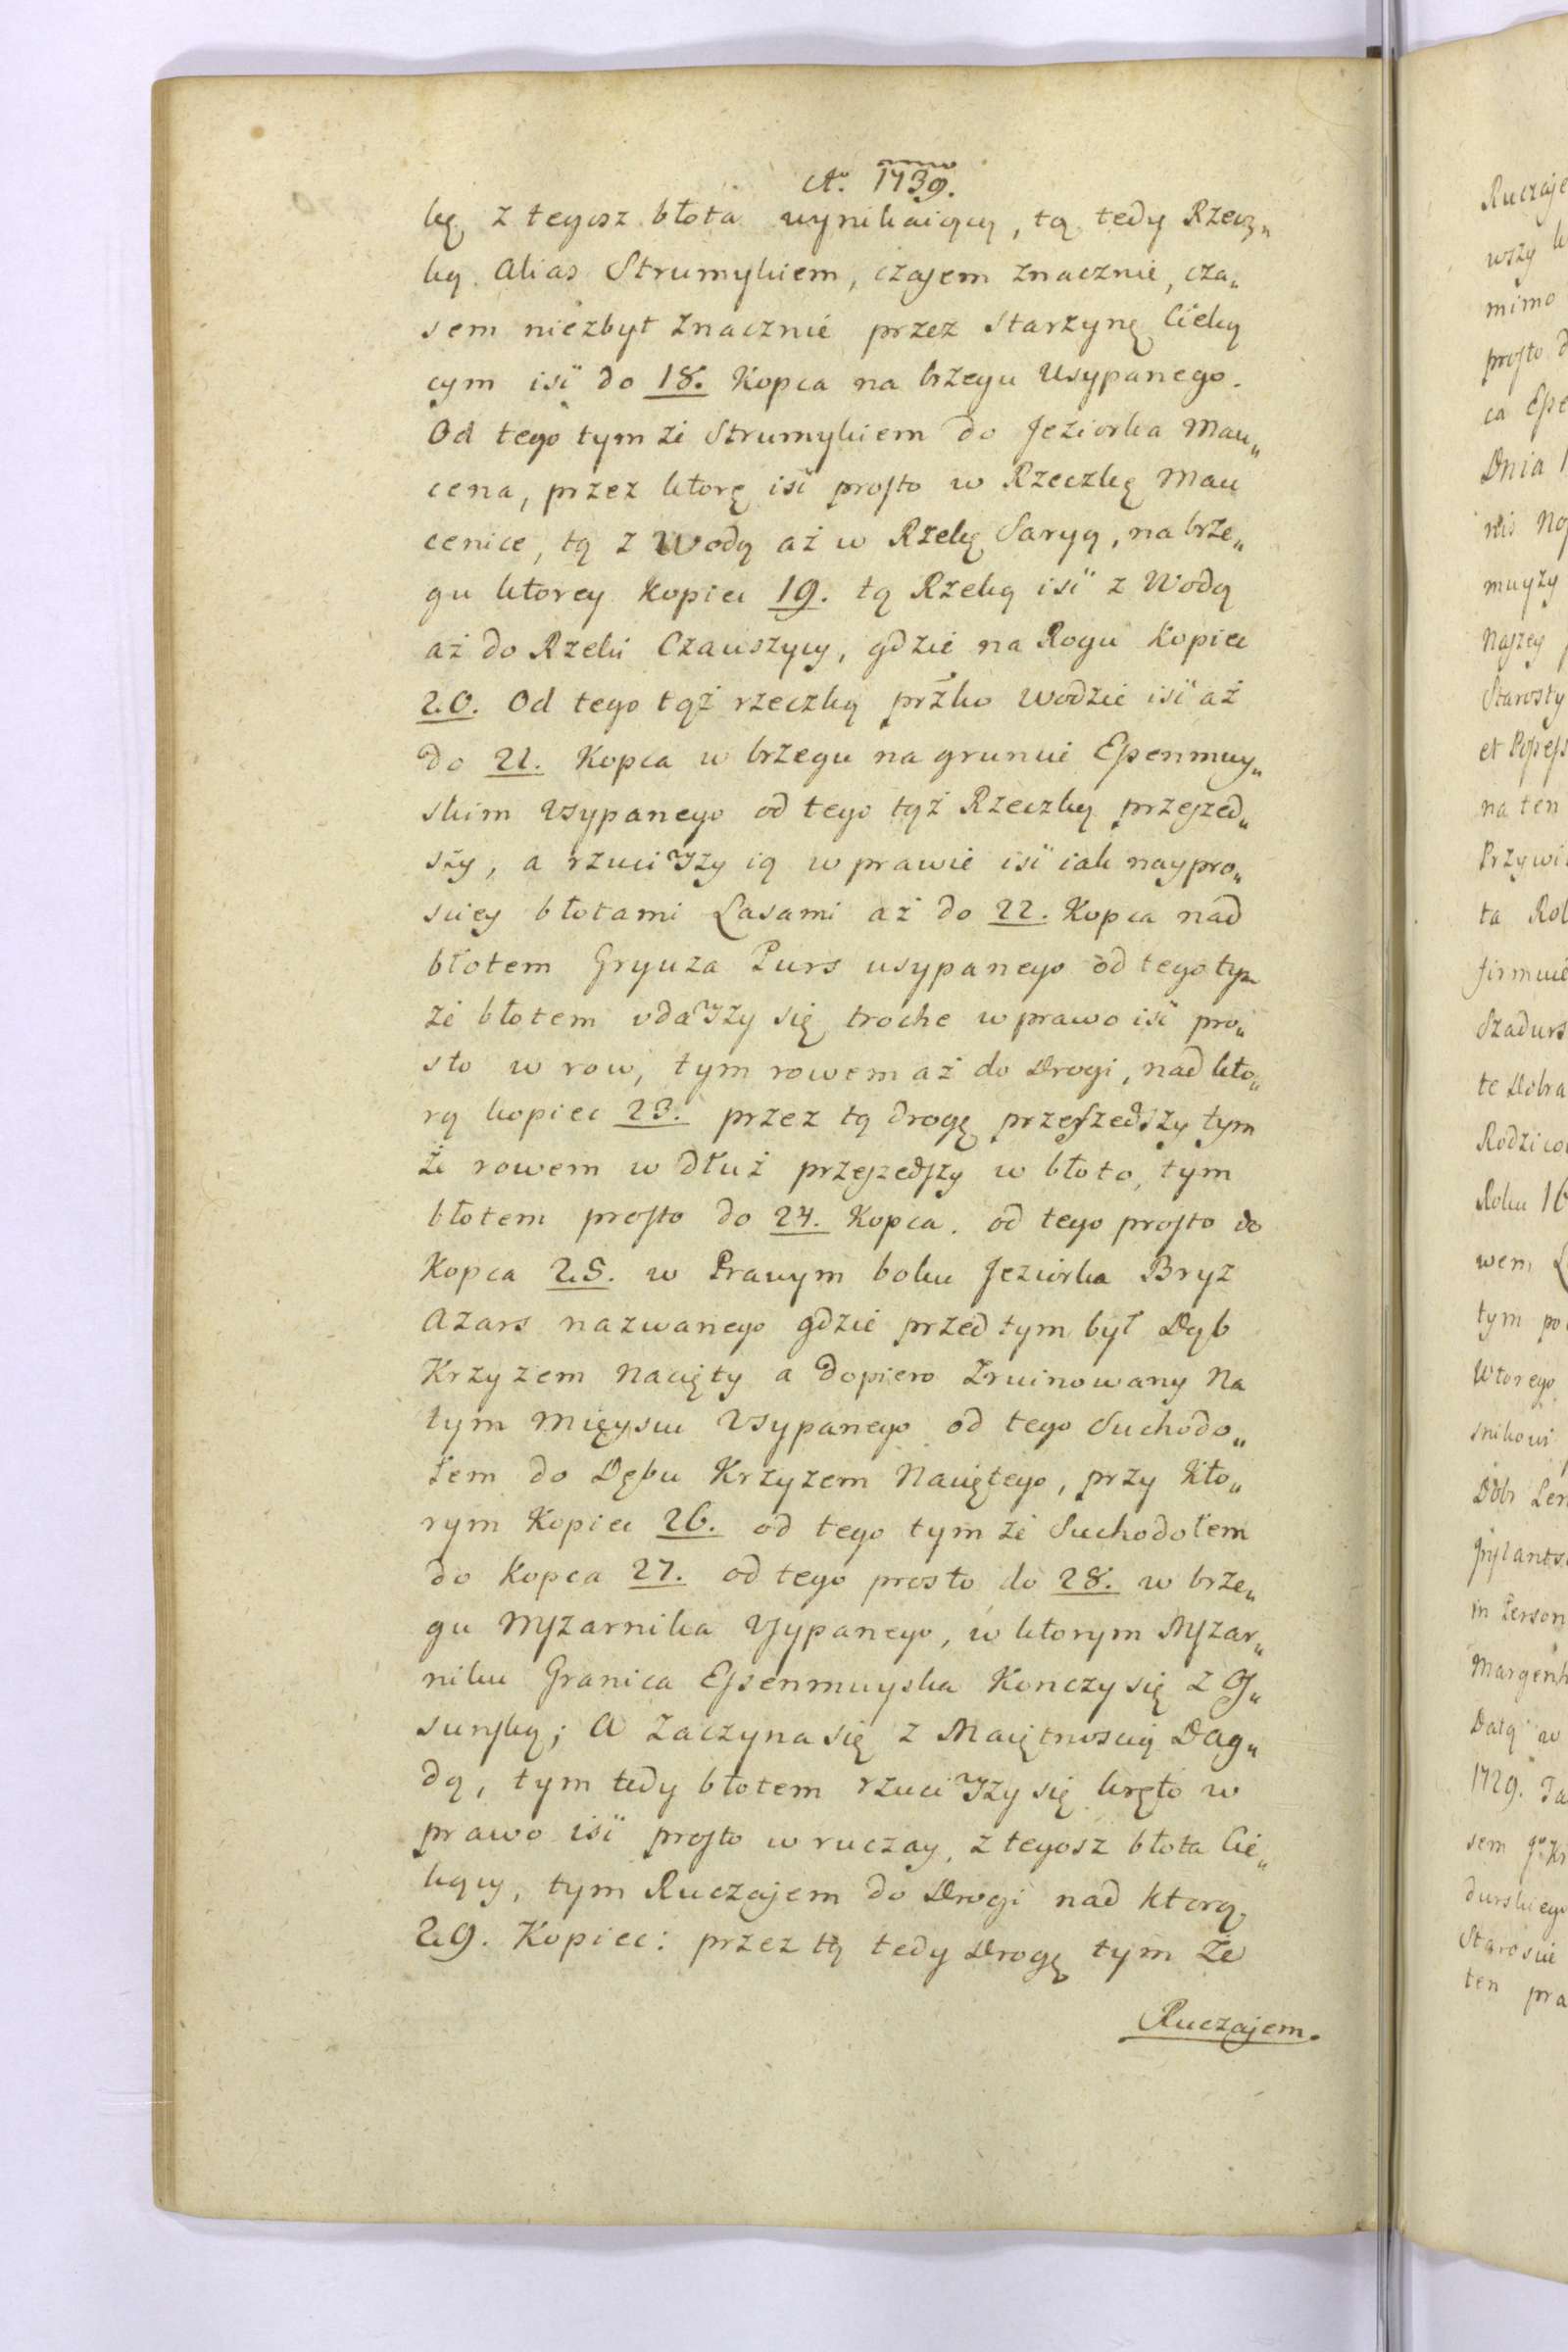 Ao. 1739.
kę z tegosz błota wynikaiącą, tą tedy Rzecz„
ką alias Strumykiem, czasem znacznie, cza„
sem niezbyt znacznie przez Starzynę Cieką
cym iść do 18. Kopca na brzegu Usypanego.
Od tego tym że Strumykiem do Jeziorka Mau„
cena, przez ktorę iść prosto w Rzeczkę Mau
cenice, tą z Wodą aż w Rzekę Saryą, na brze„
gu ktorey Kopiec 19. tą Rzeką iść z Wodą
aż do Rzeki Czauszycy, gdzie na Rogu Kopiec
20. Od tego tąż rzeczką przko wodzie iść aż
do 21. Kopca w brzegu na gruncie Esenmuy„
skim Usypanego od tego tąż Rzeczką przeszed„
szy, a rzuciwszy ią w prawie iść iak naypro„
sciey błotami Lasami aż do 22. Kopca nad
błotem Gryuza Purs usypanego od tego tym
że błotem udawszy się troche w prawo iść pro„
sto w row, tym rowem aż do Drogi, nad kto„
rą kopiec 23. przez tą drogę przeszedszy tym
że rowem w dłuż przeszedszy w błoto, tym
błotem prosto do 24. Kopca. od tego prosto do
Kopca 25. w Prawym boku Jeziorka Bryz
Azars nazwanego gdzie przed tym był Dąb
Krzyzem Nacięty a dopiero Zruinowany Na
tym Mięyscu Usypanego od tego Suchodo„
łem do Dębu Krzyzem Naciętego, przy Kto„
rym Kopiec 26. od tego tym że Suchodołem
do Kopca 27. od tego prosto do 28. w brze„
gu Mszarnika Usypanego, w ktorym Mszar„
niku Granica Esenmuyska Konczy się z
sunską; A Zaczyna się z Maiętnoscią Dag„
dą, tym tedy błotem rzuciwszy się kręto w
prawo iść prosto w ruczay, z tegosz błota Cie„
kący, tym Ruczajem do Drogi nad ktorą
29. Kopiec: przez tą tedy Drogę tym że
Ruczajem.
Ruczaje
wszy
mimo
prosto
ca
Dnia 1
muyży
Naszey
Starosty
na ten
Przywi
ta
Szadurs
te Dobra
Rodzico
Roku 16
wem
tym po
Wtorego
snikowi
Dobr
in Person
Margenh
Datą w
1729.
sem
durskiego
Starosuie
ten pra